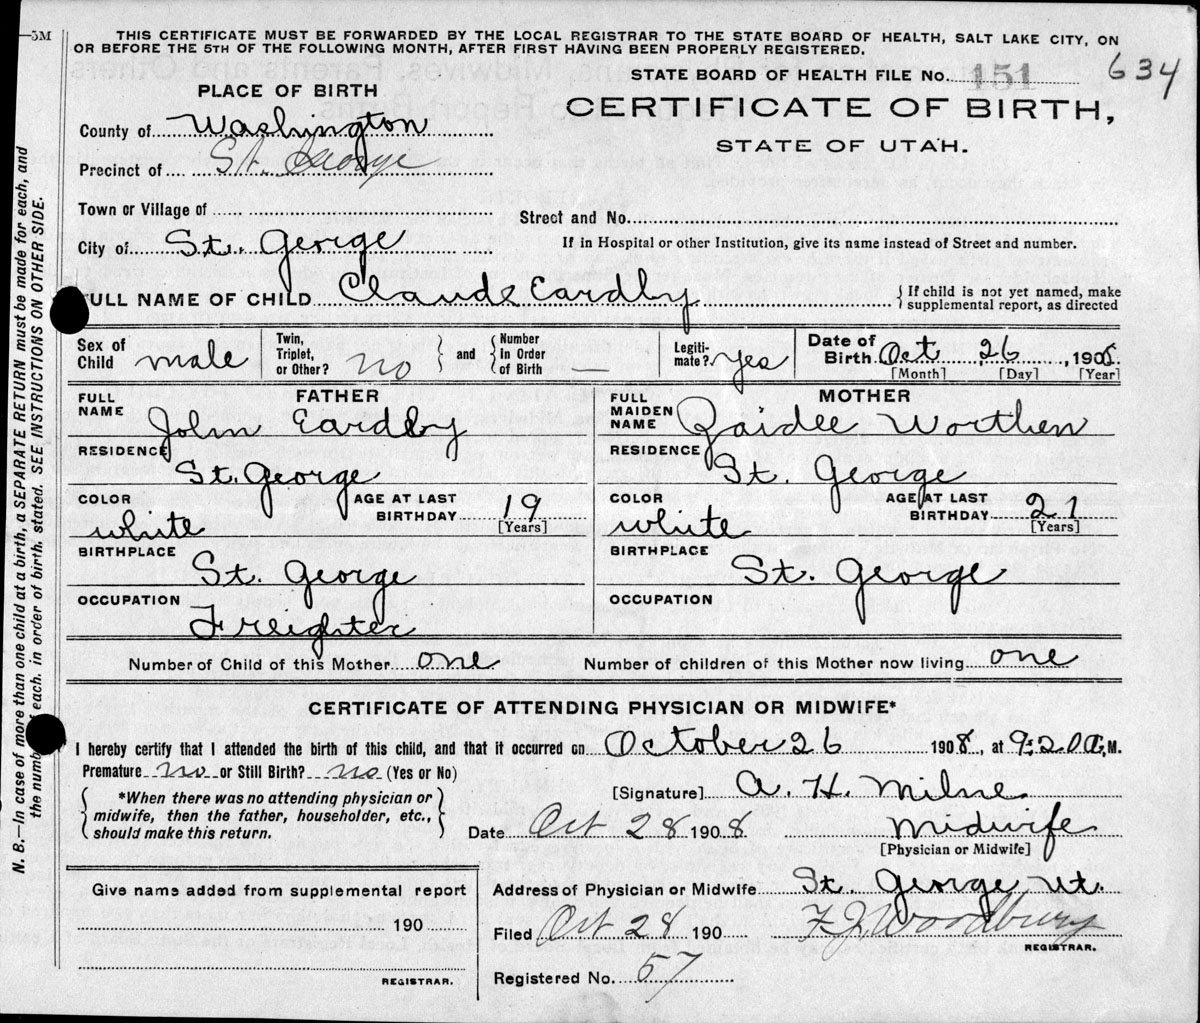 —5M
THIS CERTIFICATE MUST BE FORWARDED BY THE LOCAL REGISTRAR TO THE STATE BOARD OF HEALTH, SALT LAKE CITY, ON
OR BEFORE THE 5TH OF THE FOLLOWING MONTH, AFTER FIRST HAVING BEEN PROPERLY REGISTERED.
STATE BOARD OF HEALTH FILE No. 151 634
PLACE OF BIRTH
CERTIFICATE OF BIRTH,
STATE OF UTAH.
County of Washington
Precinct of St. George
Town or Village of
Street and No.
City of St. George
If in Hospital or other Institution, give its name instead of Street and number.
FULL NAME OF CHILD Claude Eardley { If child is not yet named, make
supplemental report, as directed
Sex of Child male
Twin, Triplet, or Other? no } and { Number in Order of Birth —
Legiti-mate? yes
Date of Birth Oct 26, 1908.
[Month] [Day] [Year]
FATHER
FULL NAME John Eardley
RESIDENCE St. George
COLOR white
AGE AT LAST BIRTHDAY 19 [Years]
BIRTHPLACE St. George
OCCUPATION Freighter
MOTHER
FULL MAIDEN NAME Zaidee Worthen
RESIDENCE St. George
COLOR white
AGE AT LAST BIRTHDAY 21 [Years]
BIRTHPLACE St. George
OCCUPATION
Number of Child of this Mother one Number of children of this Mother now living one
CERTIFICATE OF ATTENDING PHYSICIAN OR MIDWIFE*
I hereby certify that I attended the birth of this child, and that it occurred on October 26 1908, at 9:20 A. M.
Premature no or Still Birth? no (Yes or No)
{ *When there was no attending physician or
midwife, then the father, householder, etc.,
should make this return. }
[Signature] A. H. Milne
Date Oct 28 1908. Midwife
[Physician or Midwife]
Give name added from supplemental report
190
REGISTRAR.
Address of Physician or Midwife St. George Ut.
Filed Oct 28 190 F. J. Woodbury
REGISTRAR.
Registered No. 57
N. B.—In case of more than one child at a birth, a SEPARATE RETURN must be made for each, and
the number of each, in order of birth, stated. SEE INSTRUCTIONS ON OTHER SIDE.